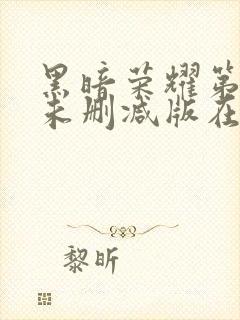 黑暗荣耀第
未删减版在
黎昕